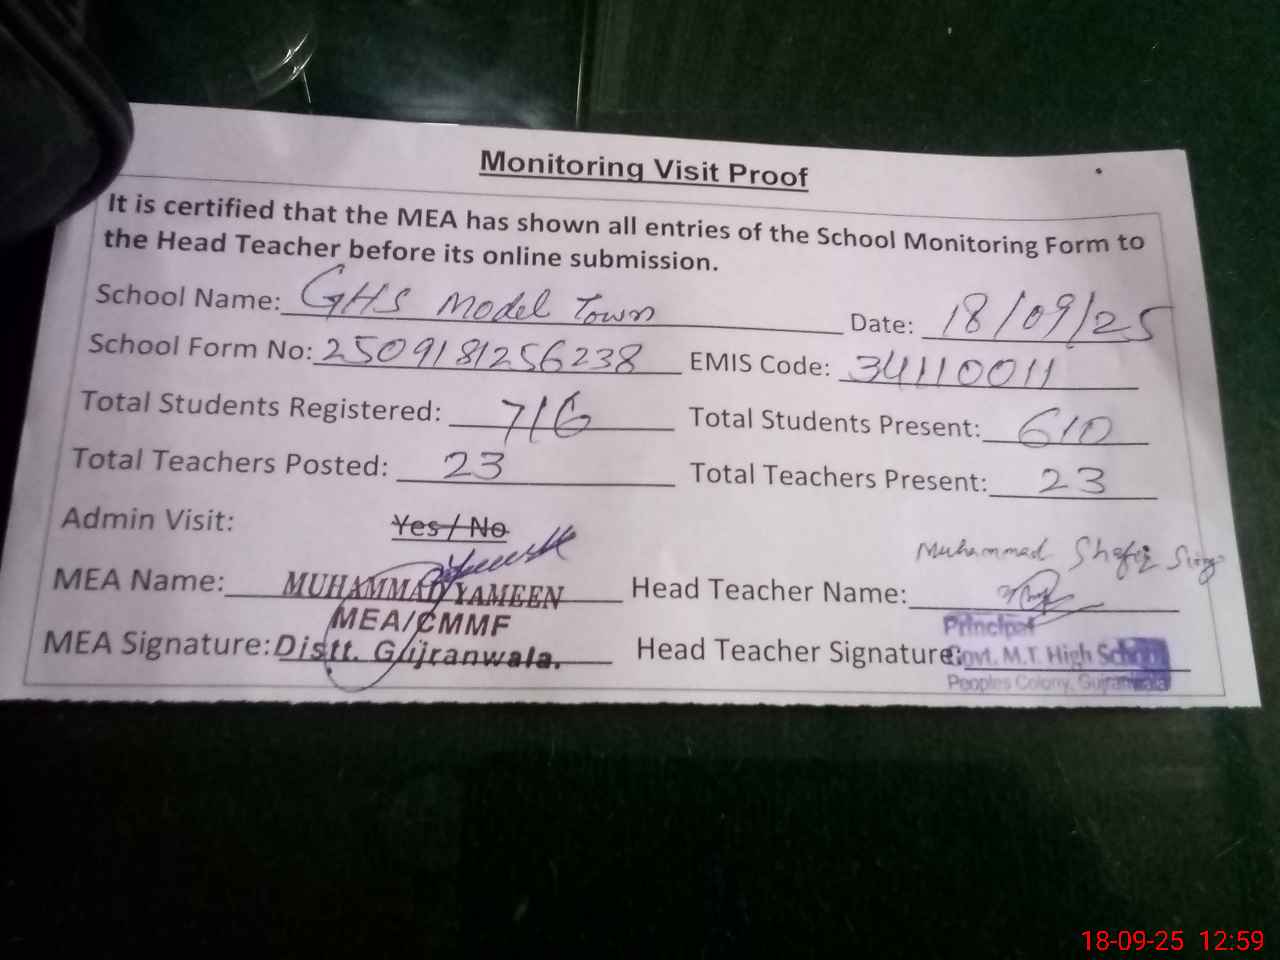 Monitoring Visit Proof
It is certified that the MEA has shown all entries of the School Monitoring Form to
the Head Teacher before its online submission.
School Name: GHS Model Town Date: 18/09/25
School Form No: 2509181256238 EMIS Code: 34110011
Total Students Registered: 716 Total Students Present: 610
Total Teachers Posted: 23 Total Teachers Present: 23
Admin Visit: Yes / No
Muhammad Shafiq
MEA Name: MUHAMMAD YAMEEN Head Teacher Name:
MEA/CMMF
Principal
MEA Signature: Distt. Gujranwala. Head Teacher Signature: Govt. M.T. High School
Peoples Colony, Gujranwala
18-09-25 12:59